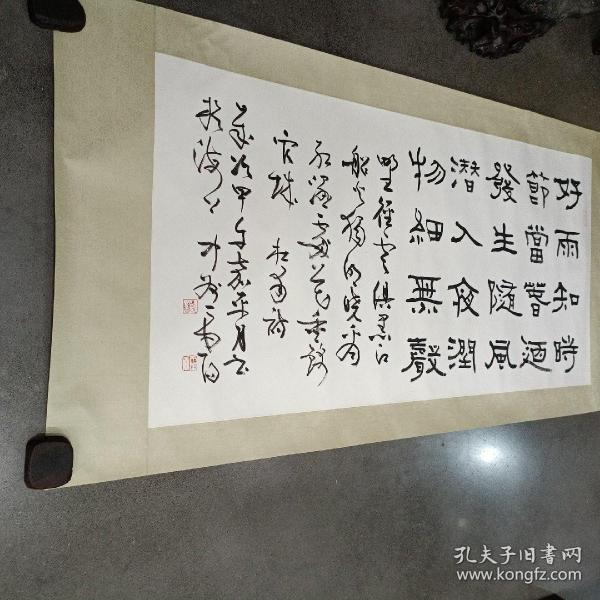 好雨知時
節當春迺
發生隨風
潛入夜潤
物細無聲
野徑雲俱黑江
船火獨明曉看
紅濕處花重錦
官城 杜甫詩
歲次甲午嘉平月書
於海上
孔夫子旧書网
www.kongfz.com